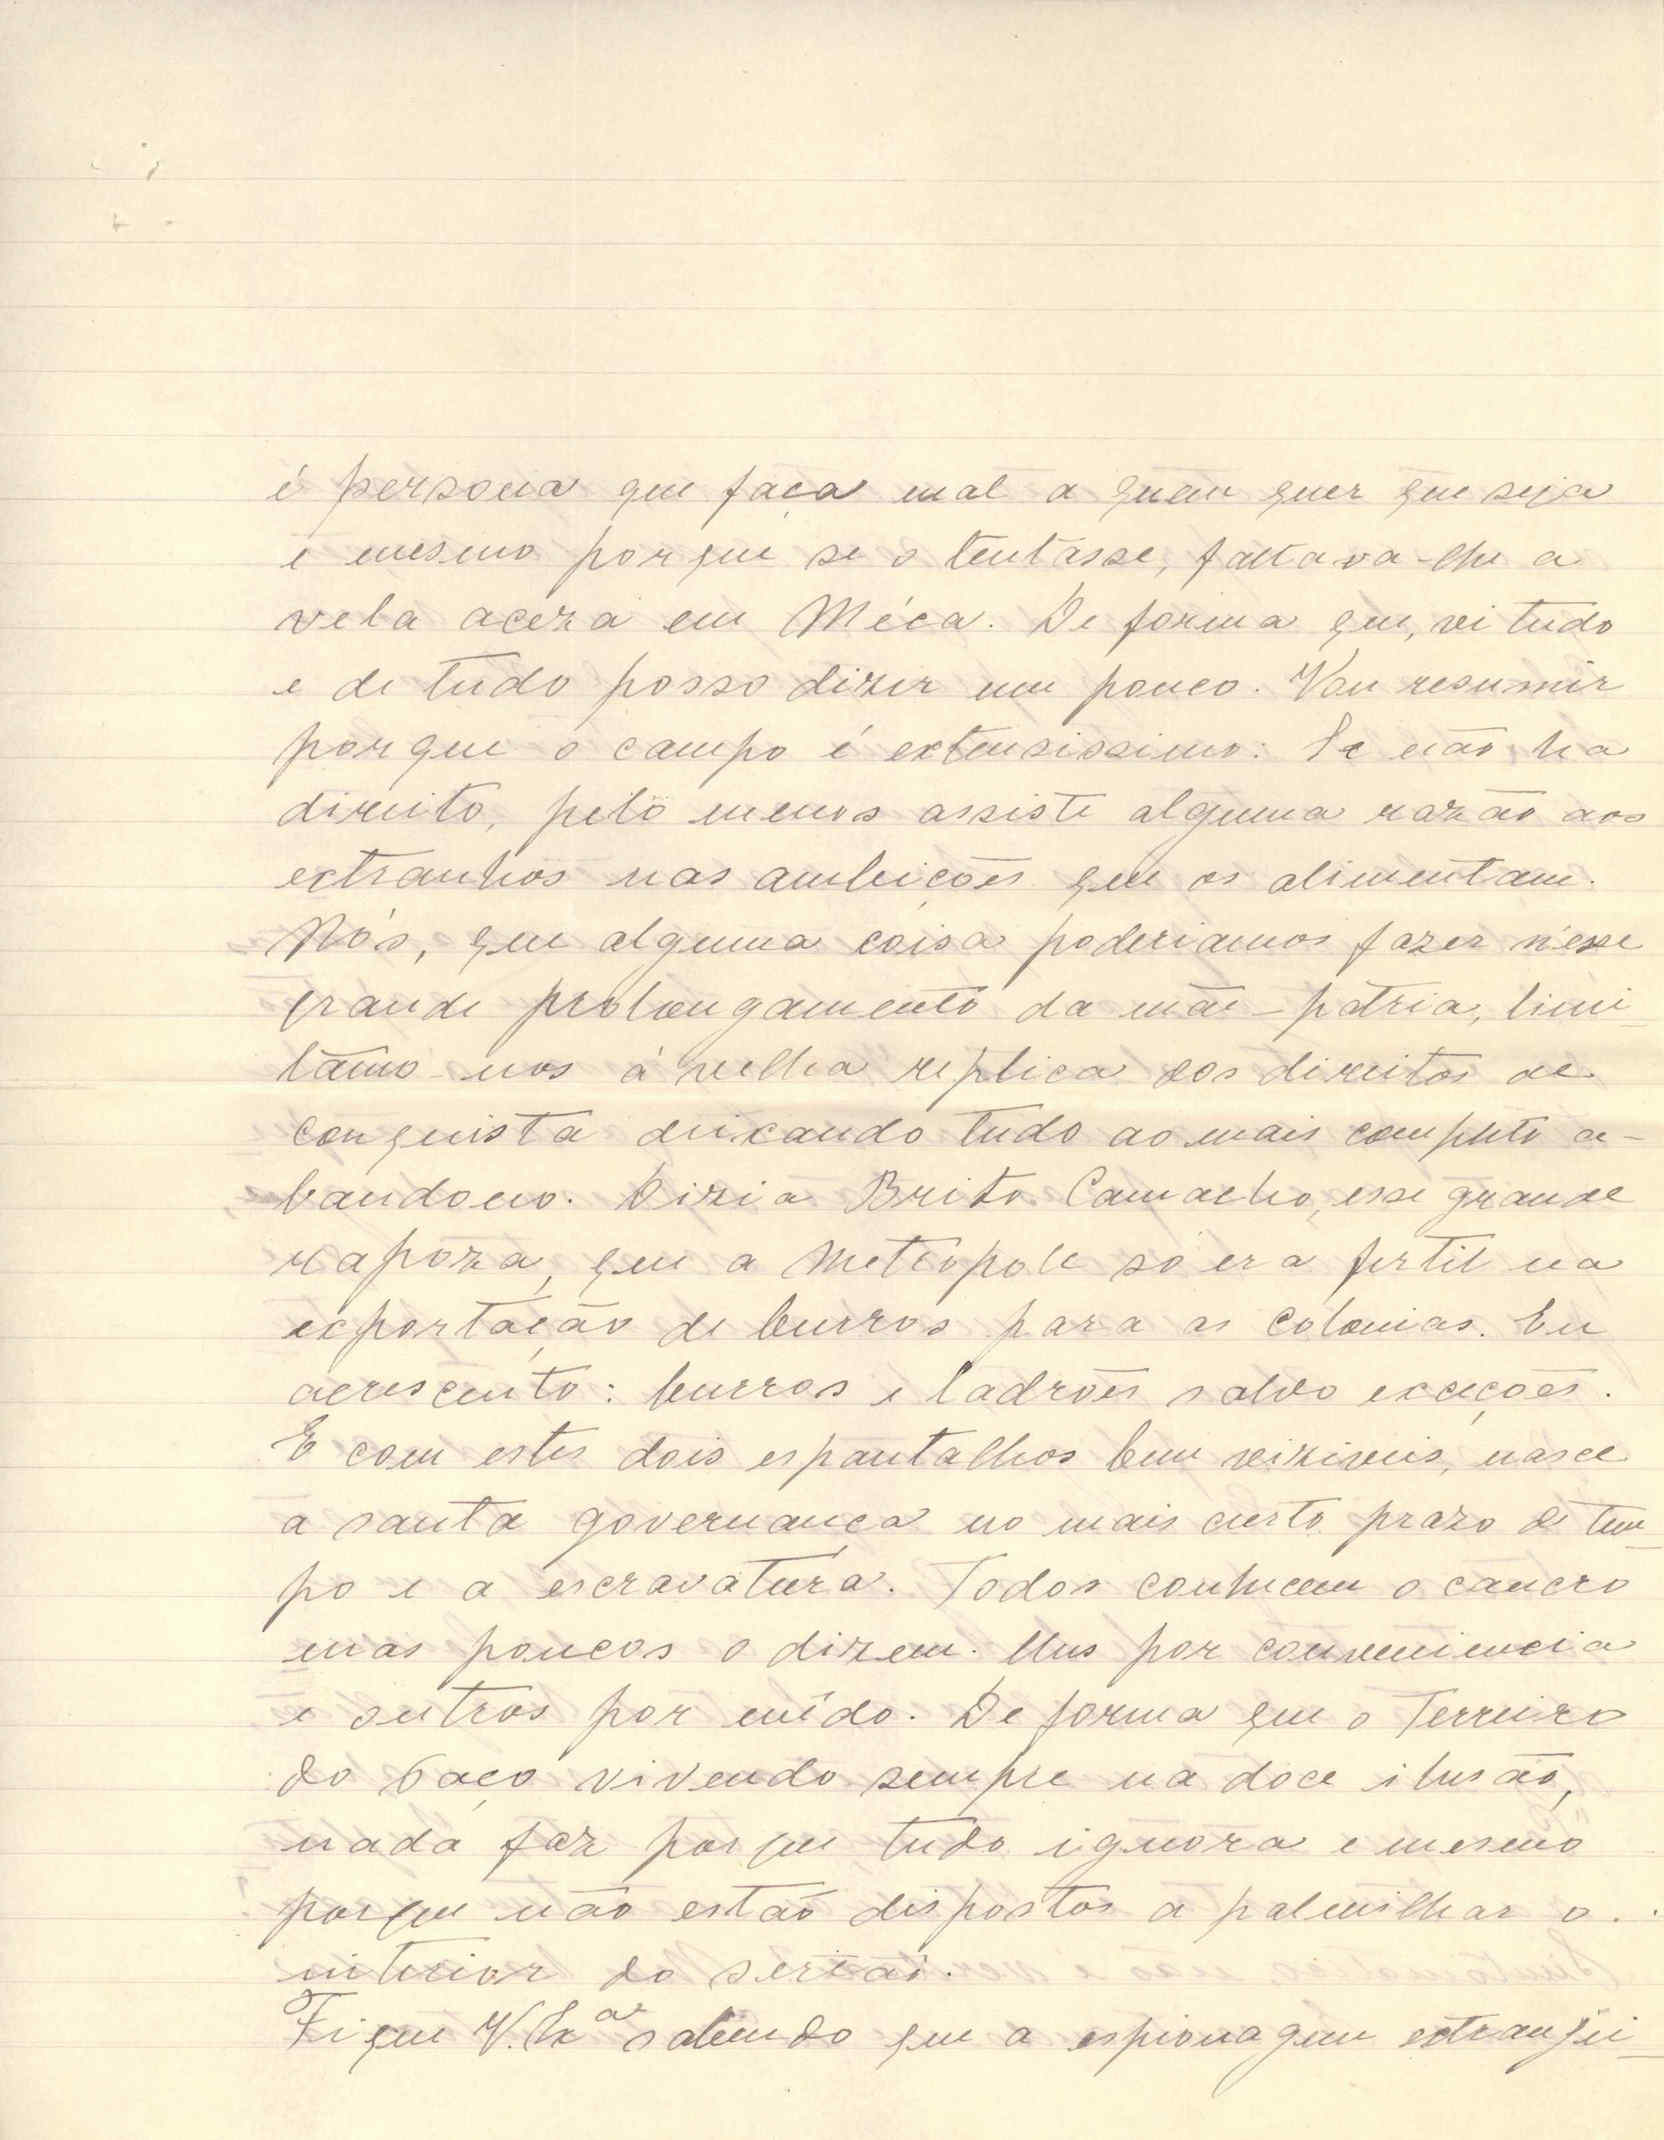 é persona que faça mal a quem quer que seja
e mesmo porque se o tentasse, faltava-lhe a
vela aceza em Méca. De forma que, vi tudo
e de tudo posso dizer um pouco. Vou resumir
porque o campo é extensissimo: Se não ha
direito, pelo menos assiste alguma razão aos
extranhos nas ambições que os alimentam.
Nós, que alguma coisa poderiamos fazer n'esse
grande prolongamento da mãe-patria, limi-
tâmo-nos á velha replica dos direitos de
conquista deixando tudo ao mais completo a-
bandono. Dizia Brito Camacho, esse grande
rapoza, que a Metrópole só era fertil na
exportação de burros para as colonias. Eu
acrescento: burros e ladrões salvo exceções.
E com estes dois espantalhos bem viziveis, nasce
a santa governança no mais curto prazo de tem-
po e a escravatura. Todos conhecem o cancro
mas poucos o dizem. Uns por conveniencia
e outros por mêdo. De forma que o Terreiro
do Paço vivendo sempre na doce ilusão,
nada faz porque tudo ignora e mesmo
porque não estão dispostos a palmilhar o
interior do sertão.
Fique V. Exª sabendo que a espionagem extranjei-